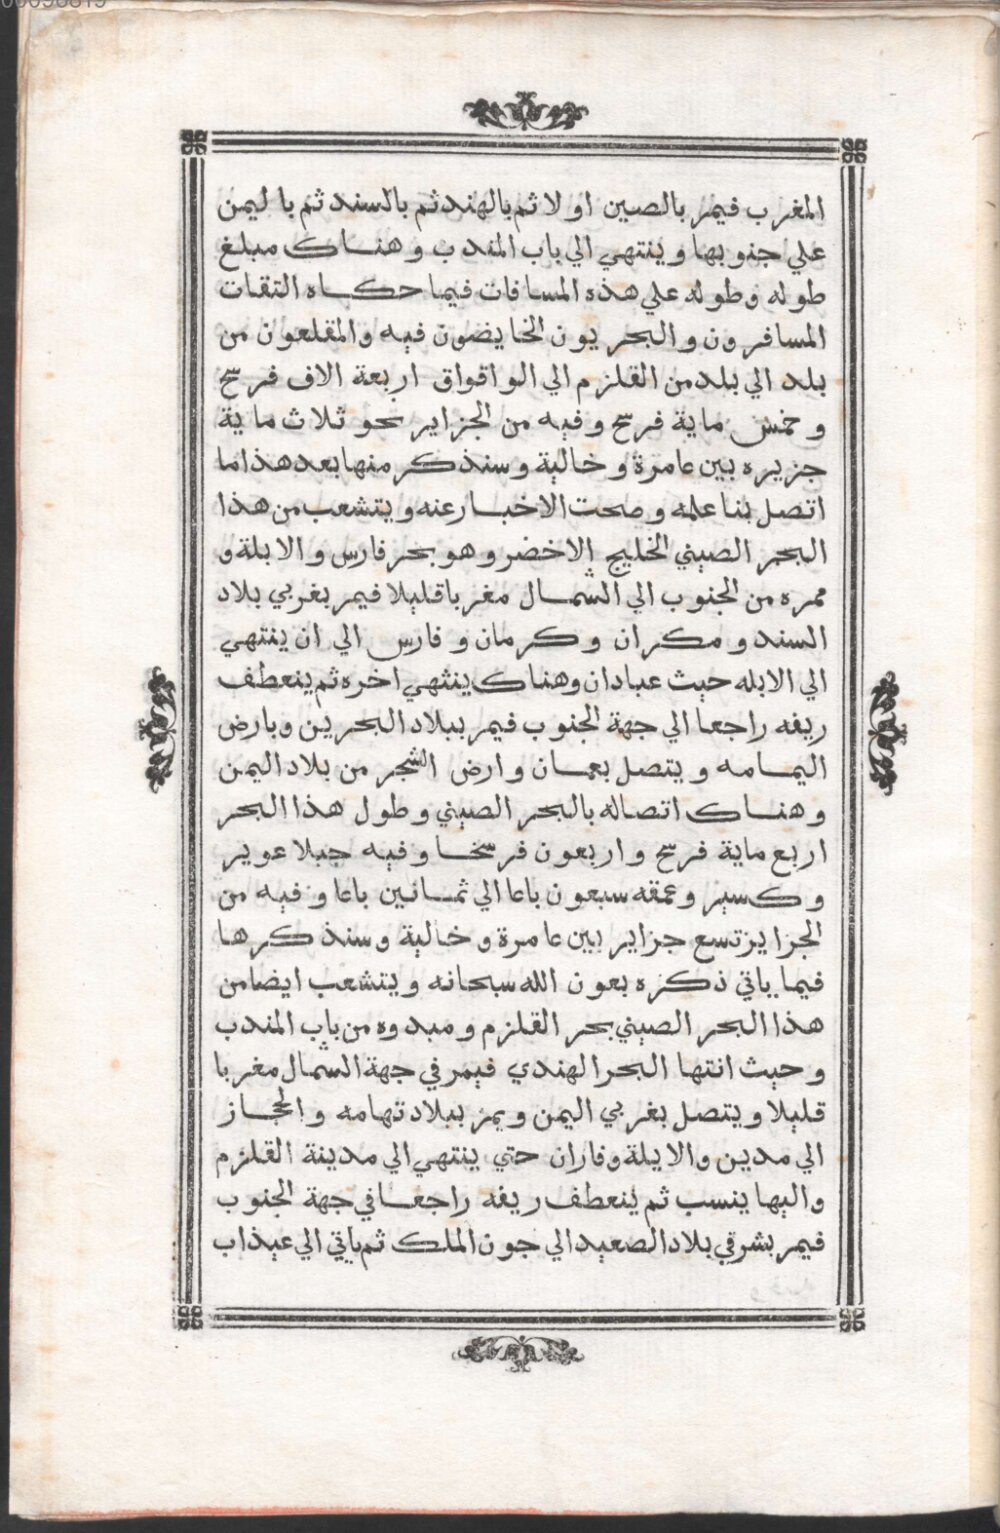 00098819
المغرب فيمر بالصين اولا ثم بالهند ثم بالسند ثم باليمن
علي جنوبها وينتهي الي باب المندب وهناك مبلغ
طوله وطوله علي هذه المسافات فيما حكاه الثقات
المسافرون والبحريون الخايضون فيه والمقلعون من
بلد الي بلد من القلزم الي الواقواق اربعة الاف فرسخ
وخمس ماية فرسخ وفيه من الجزاير نحو ثلاث ماية
جزيره بين عامرة وخالية وسنذكر منها بعد هذا ما
اتصل بنا علمه وصحت الاخبار عنه ويتشعب من هذا
البحر الصيني الخليج الاخضر وهو بحر فارس والابلة و
ممره من الجنوب الي الشمال مغربا قليلا فيمر بغربي بلاد
السند ومكران وكرمان وفارس الي ان ينتهي
الي الابله حيث عبادان وهناك ينتهي اخره ثم ينعطف
ريفه راجعا الي جهة الجنوب فيمر ببلاد البحرين وبارض
اليمامه ويتصل بعمان وارض الشجر من بلاد اليمن
وهناك اتصاله بالبحر الصيني وطول هذا البحر
اربع ماية فرسخ واربعون فرسخا وفيه جبلا عوير
وكسير وعمقه سبعون باعا الي ثمانين باعا وفيه من
الجزاير تسع جزاير بين عامرة وخالية وسنذكرها
فيما ياتي ذكره بعون الله سبحانه ويتشعب ايضا من
هذا البحر الصيني بحر القلزم ومبدوه من باب المندب
وحيث انتها البحر الهندي فيمر في جهة الشمال مغربا
قليلا ويتصل بغربي اليمن ويمر ببلاد تهامه والحجاز
الي مدين والايلة وفاران حتي ينتهي الي مدينة القلزم
واليها ينسب ثم ينعطف ريفه راجعا في جهة الجنوب
فيمر بشرقي بلاد الصعيد الي جون الملك ثم ياتي الي عيذاب